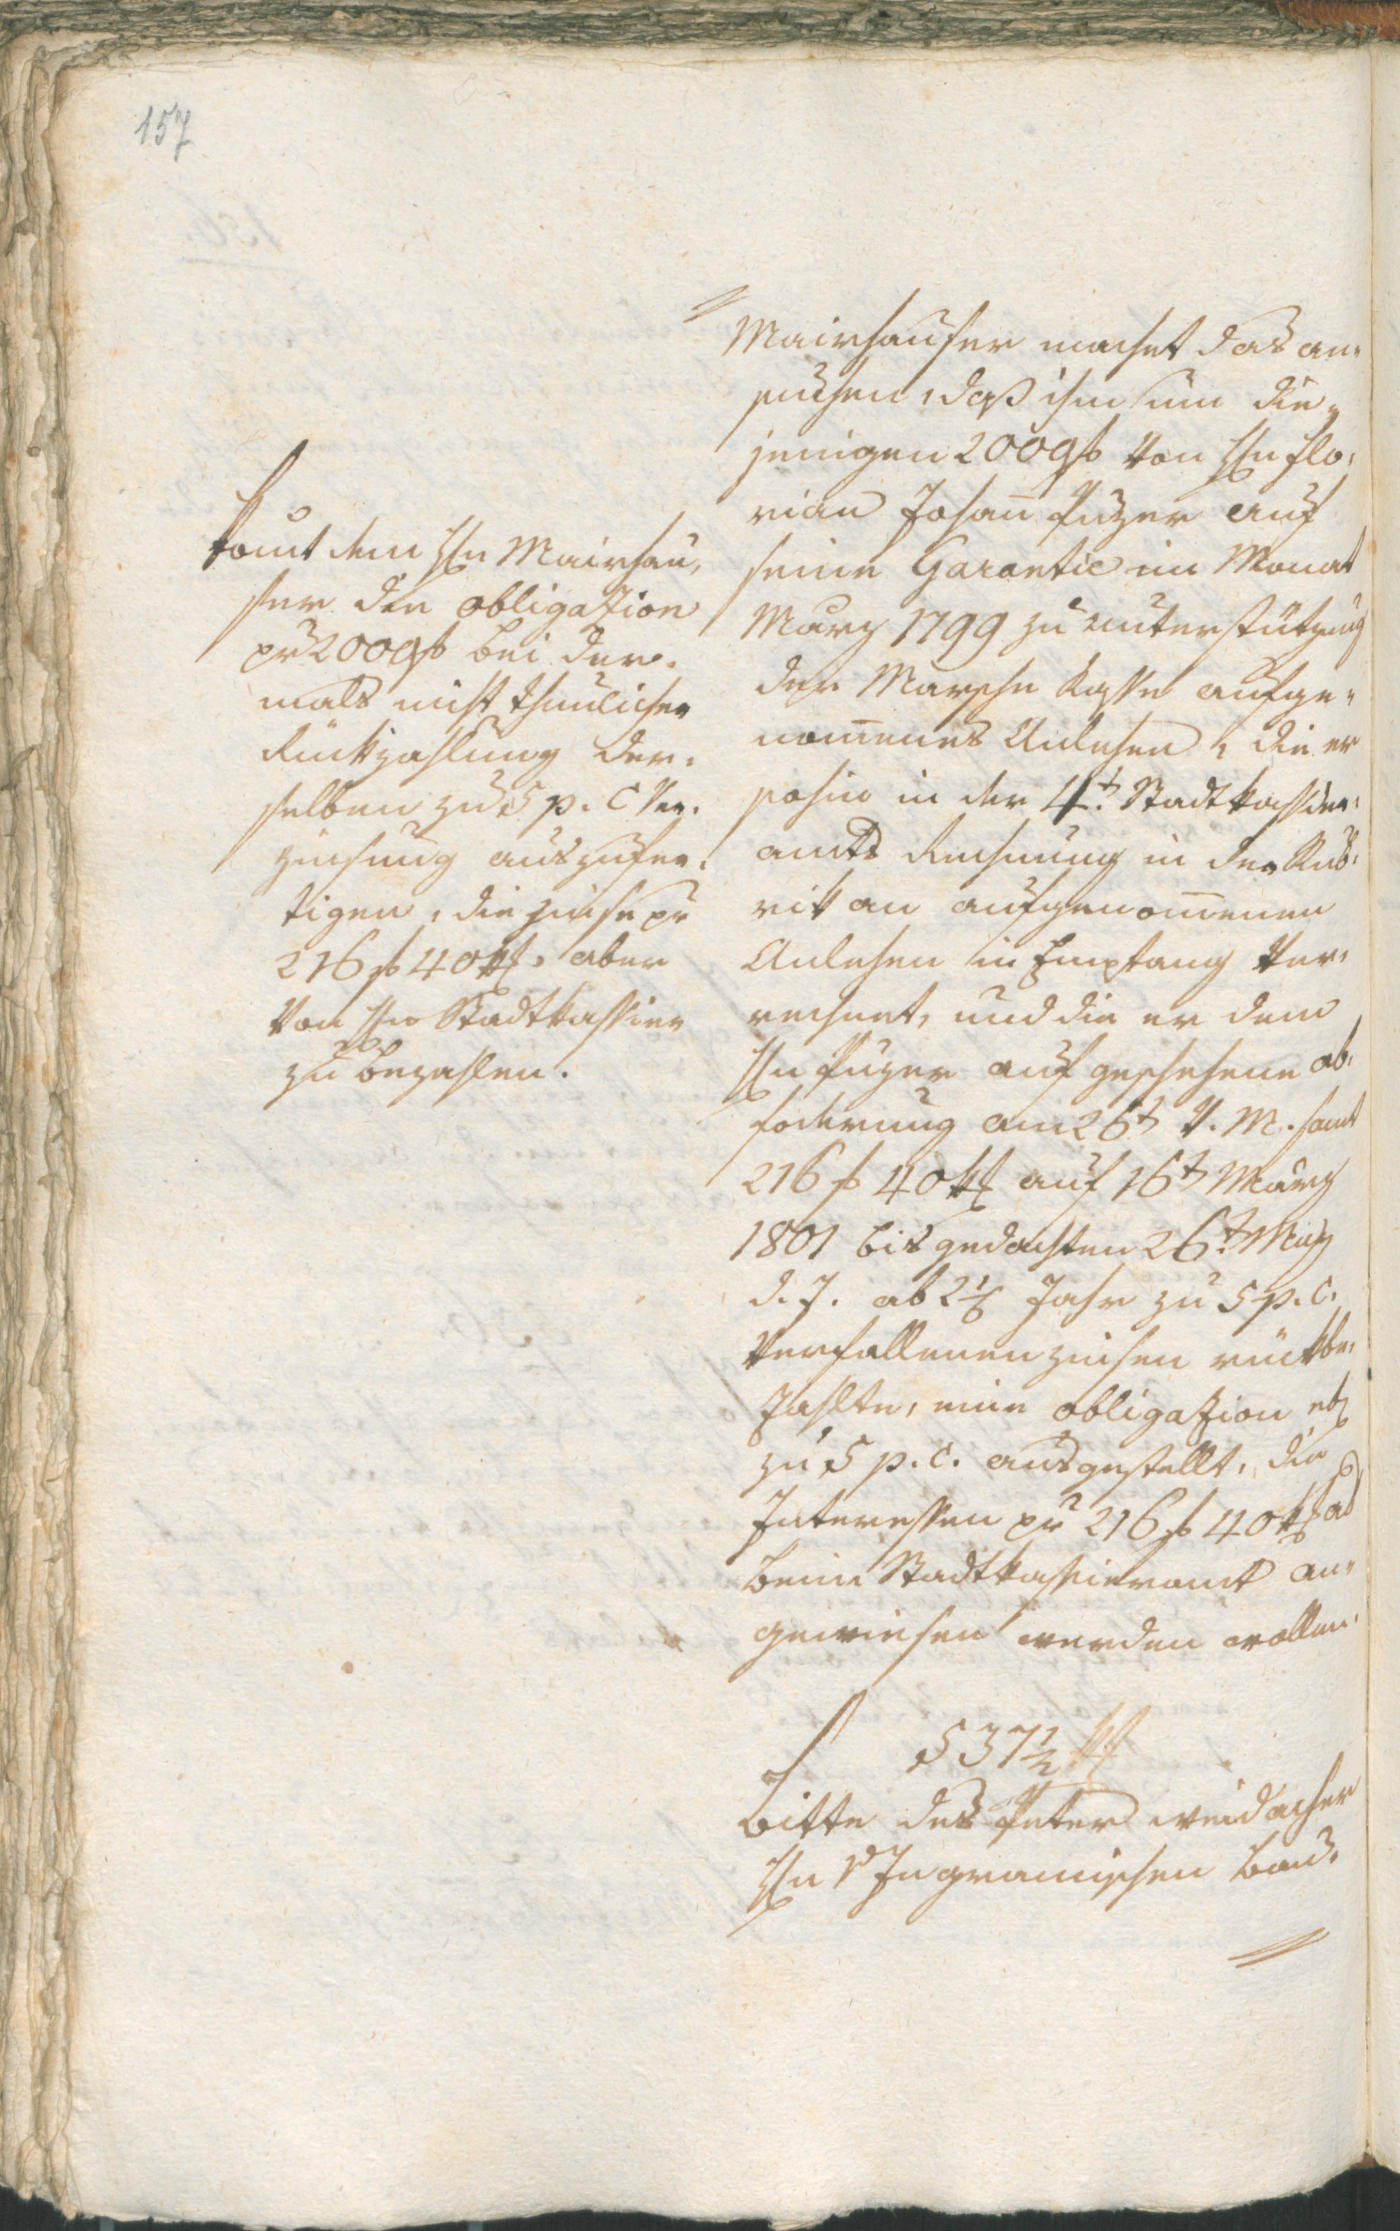 157
Mairhauser machet das an¬
suchen, daß ihm um die¬
jenigen 2000 f von Hn Flo¬
rian Johann Puzer auf
seine Garantie im Monat
März 1799 zu unterstützung
der Marsche Kasse aufge¬
nommenes Anlehen, die er
sohin in der 4t. Stadtkassier¬
amts Rechnung in der Rub¬
rik an aufgenommenen
Anlehen in Empfang ver¬
rechnet, und die er dem
Hn Puzer auf geschehene ab¬
foderung am 26t v. M. samt
216 f 40 kr auf 16t März
1801 bis gedachten 26t. May
d. J. ab 2 1/6 Jahr zu 5 p. c.
verfallenen zinsen rückbe¬
zahlte, eine obligazion
zu 5 p. c. ausgestellt, die
Interessen pr 216 f 40 kr
beim Stadtkassieramt an¬
gewiesen werden wollen.
kömt dem Hn Mairhau¬
ser die obligazion
pr 2000 f bei der¬
mals nicht thunlicher
Rückzahlung der¬
selben zu 5 p. C Ver¬
zinsung auszufer¬
tigen, die zinse pr
216 f 40 kr. aber
von Hn Stadtkassier
zu bezahlen.
537 1/2
Bitte des Peter Weidacher
Hn v Ingramischen Bau¬